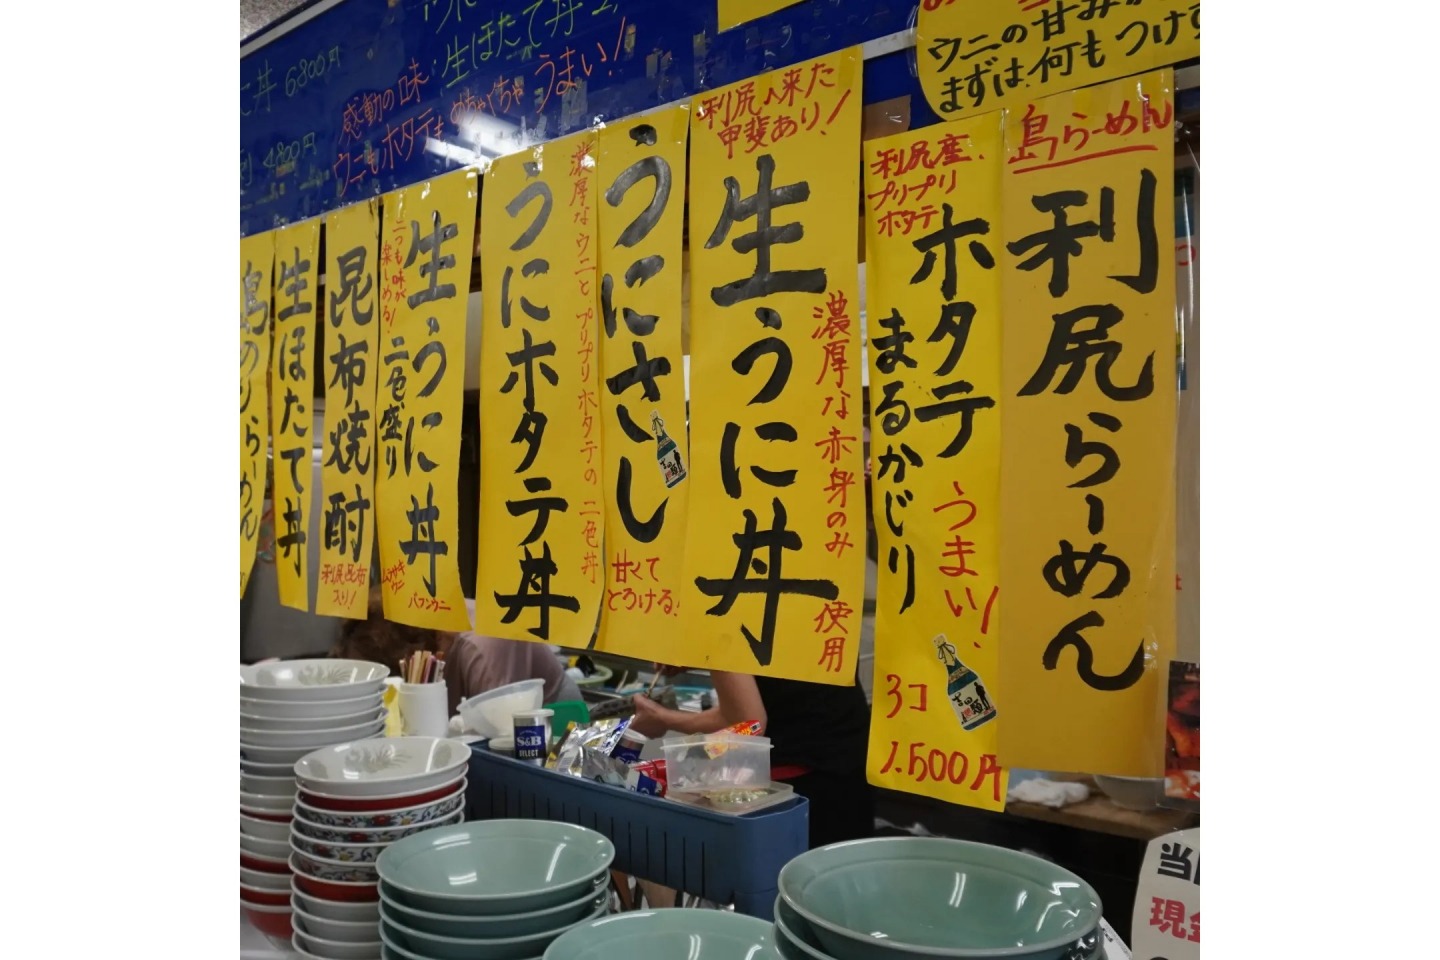 丼 6800円
4800円
生ほたて丼
感動の味!
ウニもホタテもめちゃくちゃうまい!
ウニの甘みが
まずは何もつけず
島らーめん
利尻らーめん
利尻産
プリプリ
ホタテ
ホタテ
まるかじり
うまい!
3コ
1.500円
利尻へ来た
甲斐あり!
生うに丼
濃厚な赤身のみ
使用
うにさし
甘くて
とろける!
濃厚なウニとプリプリホタテの二色丼
うにホタテ丼
生うに丼
二色盛り
二つも味が
楽しめる!
ムラサキ
ウニ
バフンウニ
昆布焼酎
利尻昆布
入り!
生ほたて丼
島のりらーめん
S&B
SELECT
当
現金